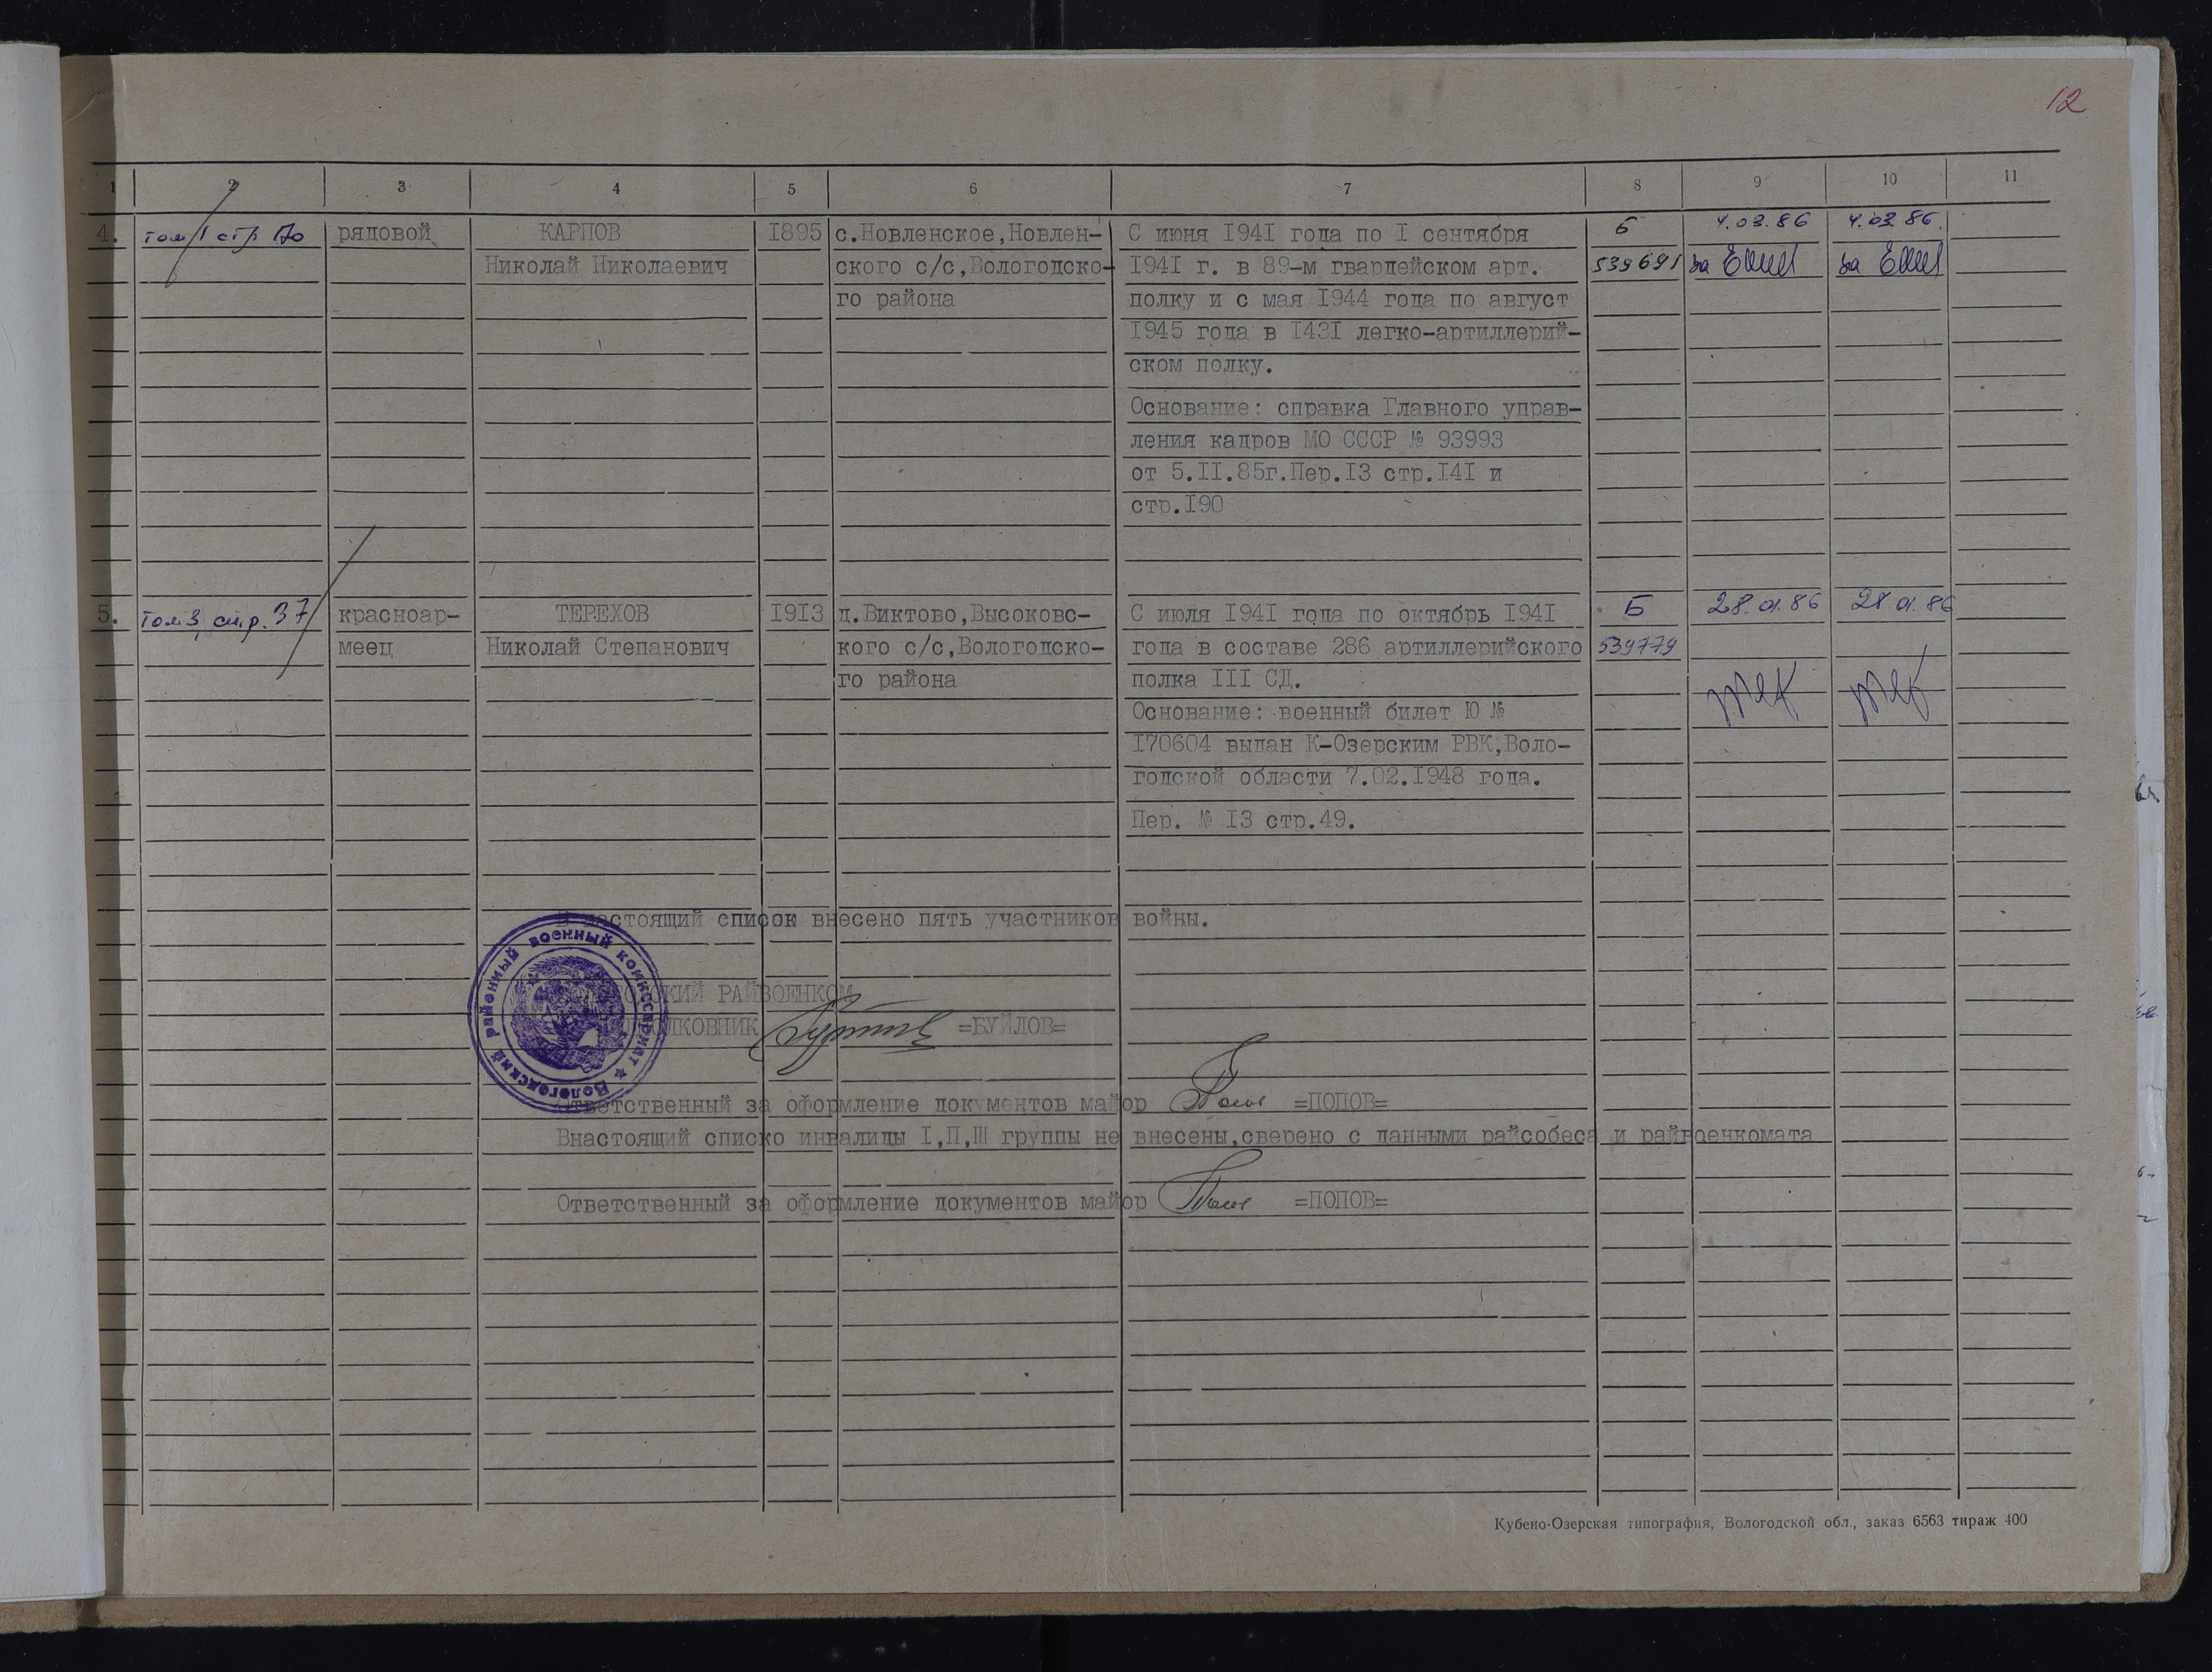 12
1 2 3 4 5 6 7 8 9 10 11
4. том 1 стр 170 рядовой КАРПОВ 1895 с.Новленское,Новлен- С июня 1941 года по I сентября Б 4.03.86 4.03.86.
Николай Николаевич ского с/с,Вологодско- 1941 г. в 89-м гвардейском арт. 539691 за за
го района полку и с мая 1944 года по август
1945 года в 1431 легко-артиллерий-
ском полку.
Основание: справка Главного управ-
ления кадров МО СССР № 93993
от 5.II.85г.Пер.I3 стр.I4I и
стр.I90
5. том 3, стр. 37 красноар- ТЕРЕХОВ 1913 д.Виктово,Высоковс- С июля 1941 года по октябрь 1941 Б 28.01.86 28.01.86
меец Николай Степанович кого с/с,Вологодско- года в составе 286 артиллерийского 539779
го района полка III СД.
Основание: военный билет Ю №
170604 выдан К-Озерским РВК,Воло-
годской области 7.02.1948 года.
Пер. № I3 стр.49.
В настоящий список внесено пять участников войны.
РАЙВОЕНКОМ
=БУЙЛОВ=
Вологодский районный военный комиссариат
Ответственный за оформление документов майор =ПОПОВ=
Внастоящий списко инвалиды I,П,Ш группы не внесены,сверено с данными райсобеса и райвоенкомата
Ответственный за оформление документов майор =ПОПОВ=
Кубено-Озерская типография, Вологодской обл., заказ 6563 тираж 400